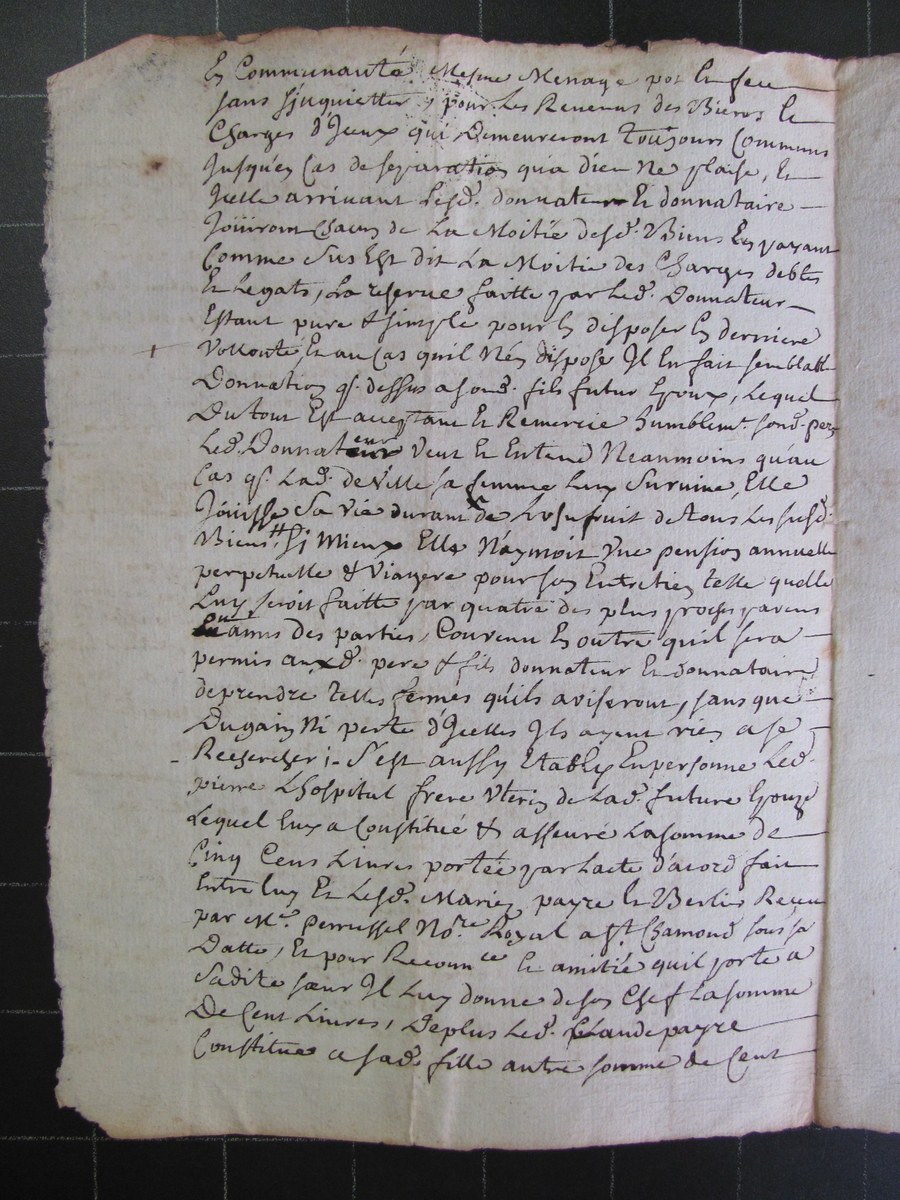 En Communauté Mesme Menage pot Et feu
sans S'Inquietter, pour Les Revenus des Biens Et
Charges d'Iceux qui Demeureront Toujours Communs
Jusqu'en Cas de separation qu'a dieu Ne plaise, Et
Icelle arrivant Lesd. donnateur Et donnataire
Jouiront Chacun de La Moitié desd. Biens En payant
Comme Sus Est dit La Moitié des Charges debtes
Et Legats, La reserve faitte par Led. Donnateur
Estant pure & simple pour En disposer En derniere
Vollonté, Et au Cas qu'il N'en dispose Il En fait semblable
Donnation q. dessus a sond. fils futur Epoux, Lequel
Du tout Est acceptant Et Remercie humblemt. sond. pere
Led. Donnateur Veut Et Entend Neanmoins qu'au
Cas q. Lad. de Ville sa femme Luy Survive, Elle
Jouisse Sa Vie durant de L'usufruit de tous Les susd.
Biens, Si Mieux Elle N'aymoit Une pension annuelle
perpetuelle & Viagere pour son Entretien telle quelle
Luy seroit faitte par quatre des plus proches parens
ou amis des parties, Convenu En outre quil sera
permis auxd. pere & fils donnateur Et donnataire
de prendre telles fermes qu'ils aviseront, sans que
Du gain Ni perte d'Icelles Ils ayent rien a se
Rechercher ;- S'est aussy Etably En personne Led.
pierre Lhospital frere Uterin de Lad. future Epouze
Lequel Luy a Constitué & asseuré La somme de
Cinq Cens Livres portée par Lacte d'acord fait
Entre luy Et Lesd. Mariez payre Et Berlier Receu
par Me. Perrussel Nore. Royal a St. Chamond sous sa
Datte, Et pour Reconnce. Et amitié quil porte a
Sadite sœur Il Luy donne de son Chef La somme
De Cent Livres, De plus Led. Claude payre
Constitue a sad. fille autre somme de Cent